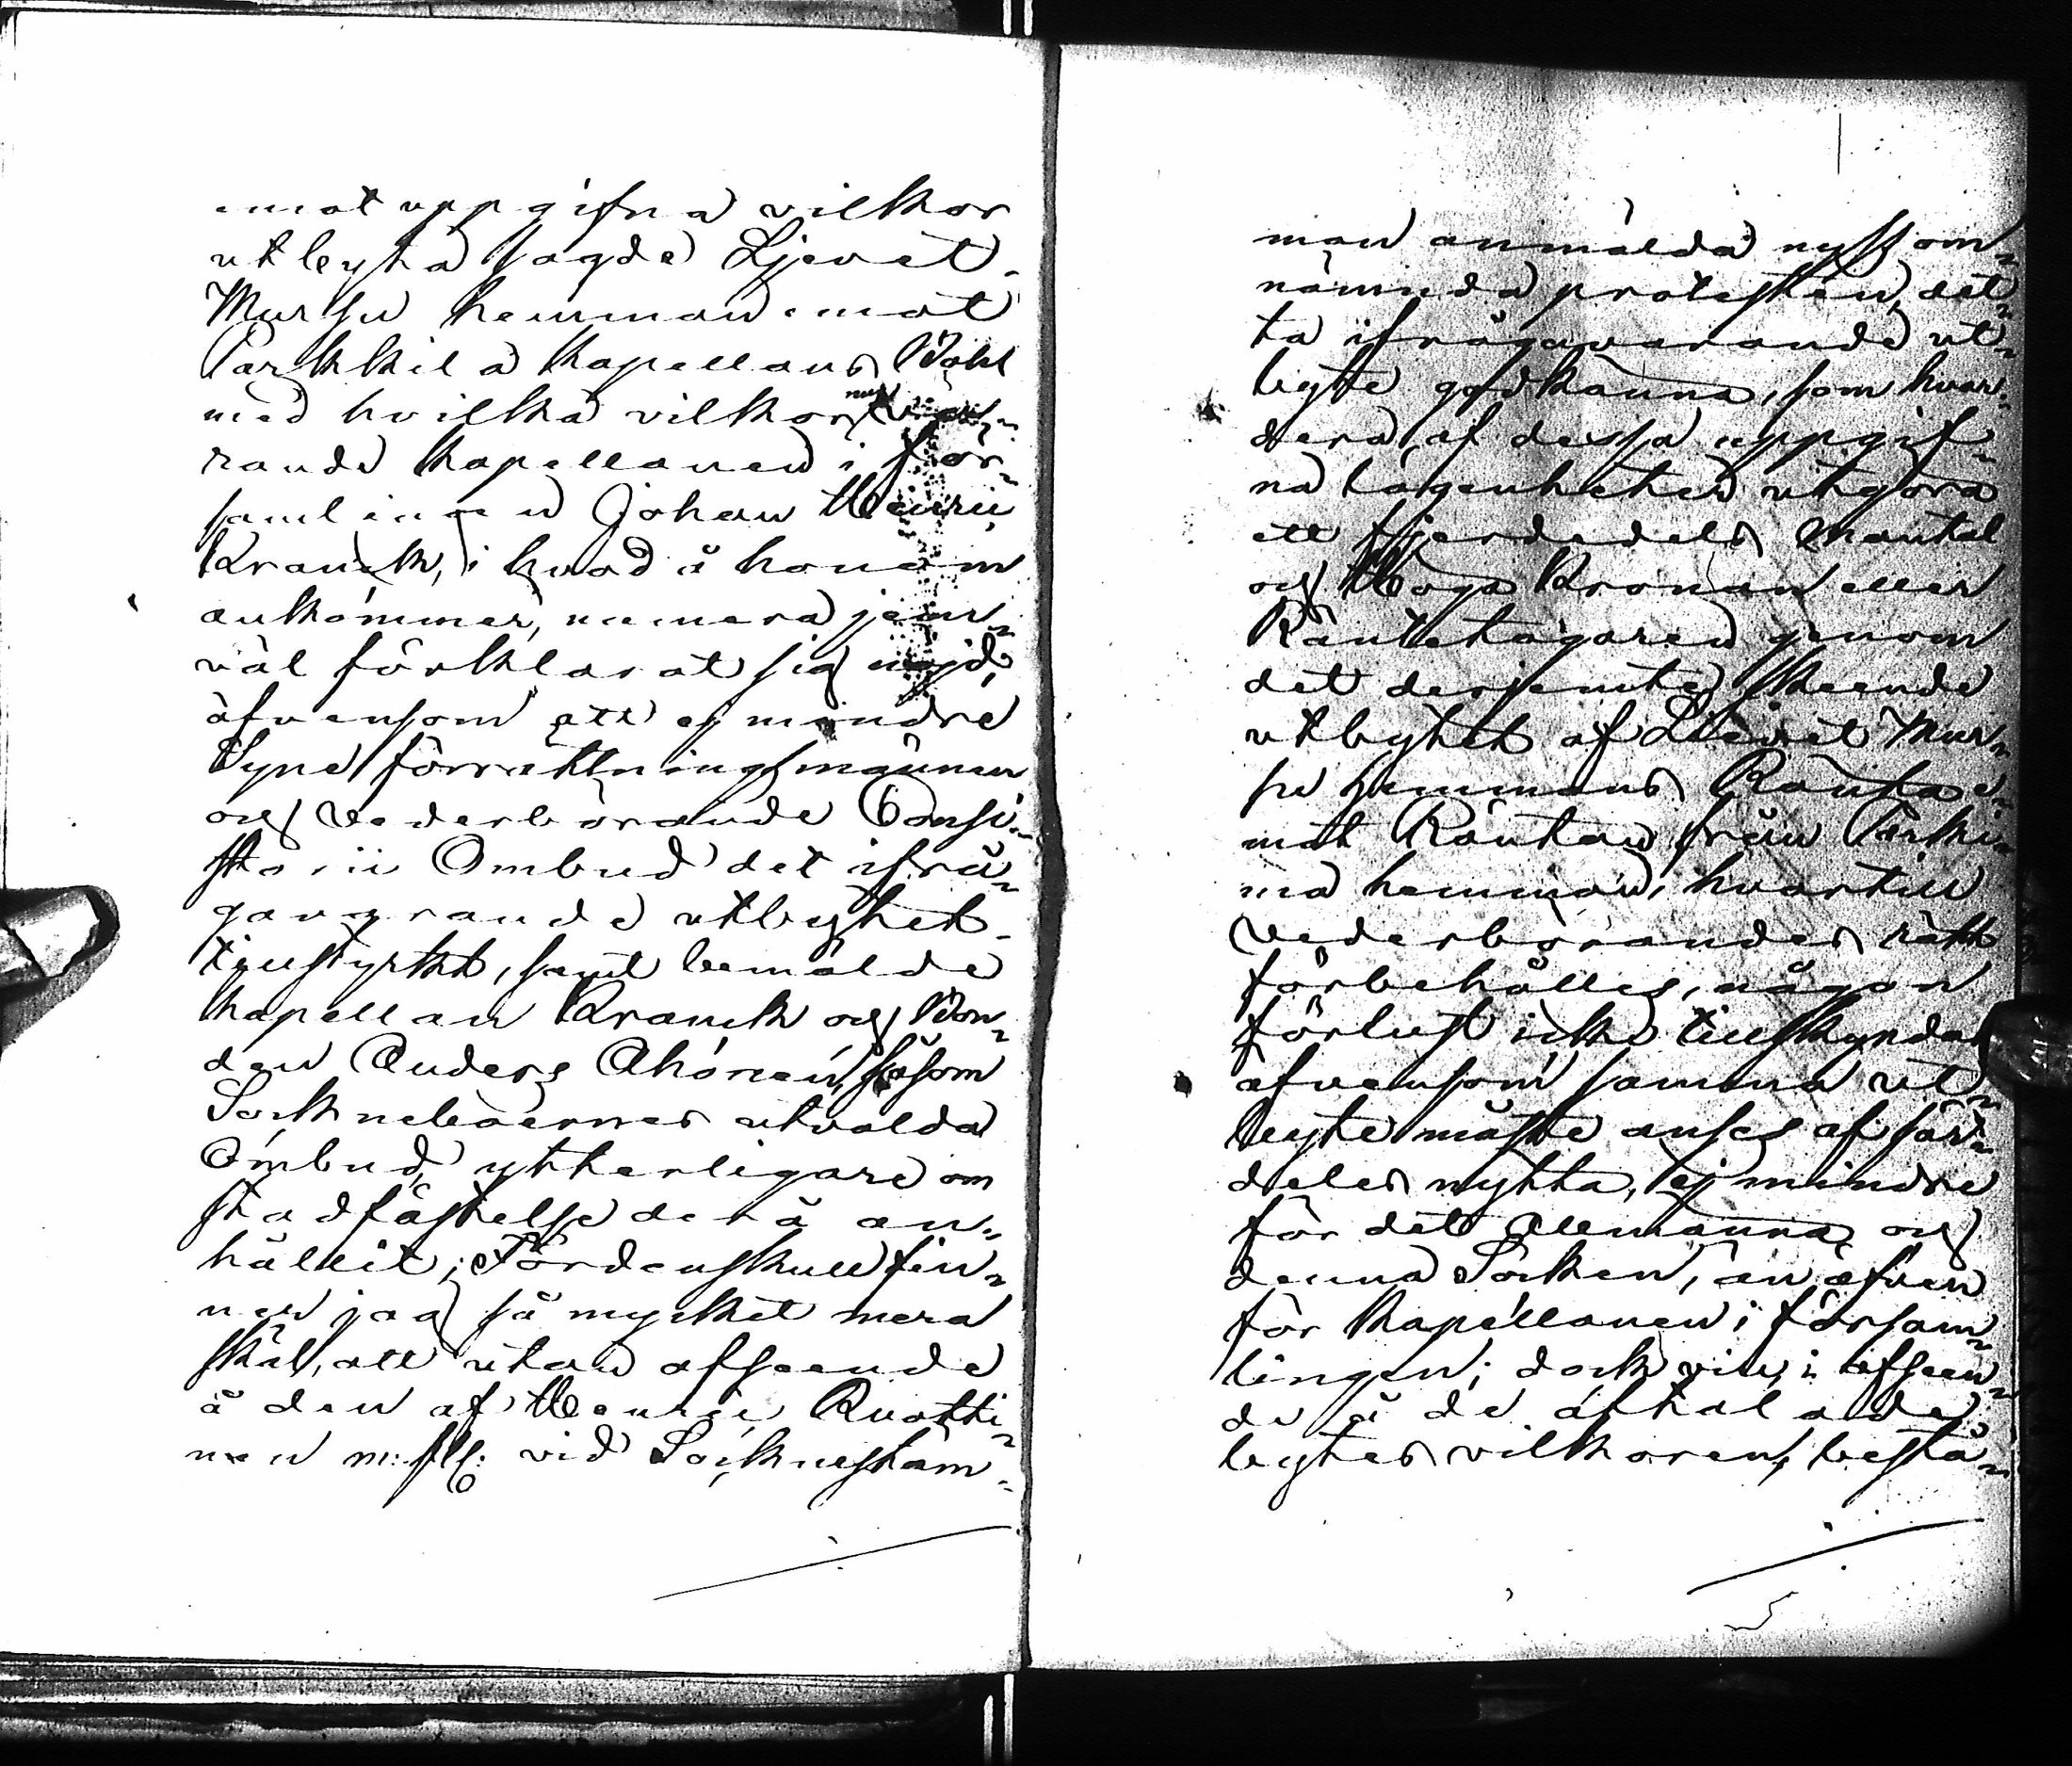 emot uppgifna vilkor
utbyta sagde Ljevet
Mursu hemman emot
Parkkila Kapellans Bohl
med hvilka vilkor nu va-
rande Kapellanen i för-
samlingen Johan Henric
Kranck, i hvad å honom
ankommer, numera jem-
väl förklarat sig nöjd,
äfvensom att ej mindre
Syne förrättningsmännen
och Vederbörande Consi-
storii Ombud det ifrå-
gavarande utbytet
tillstyrkt, samt bemälde
Kapellan Kranck och Bon-
den Anders Ahonen, såsom
Sockneboernes utvalda
Ombud, ytterligare om
stadfästelse derå an-
hållit; Fördenskull fin-
ner jag så mycket mera
skäl, att utan afseende
å den af Henric Ruotti-
nen m: fl: vid Sockneståm-
man anmälda nyssom-
nämnda protesten, det-
ta ifrågavarande ut-
byte godkänna, som hvar-
dera af dessa uppgif-
na lägenheter utgöra
ett fjerdedels mantal
och Höga Kronan eller
Räntetagaren genom
det derjemte skeende
utbytet af Ljevet Mur-
su hemmans Ränta e-
mot Räntan från Parki-
ma hemman, hvartill
Vederbörandes rätt
förbehålles, någon
förlust icke tillskyndas
äfvensom samma ut-
byte måste anses af sär-
deles nytta, ej mindre
för det Allmänna och
denna Socken, än äfven
för Kapellanen i försam-
lingen; dock vill, i afseen-
de å de aftalade
bytes vilkoren, bestå-